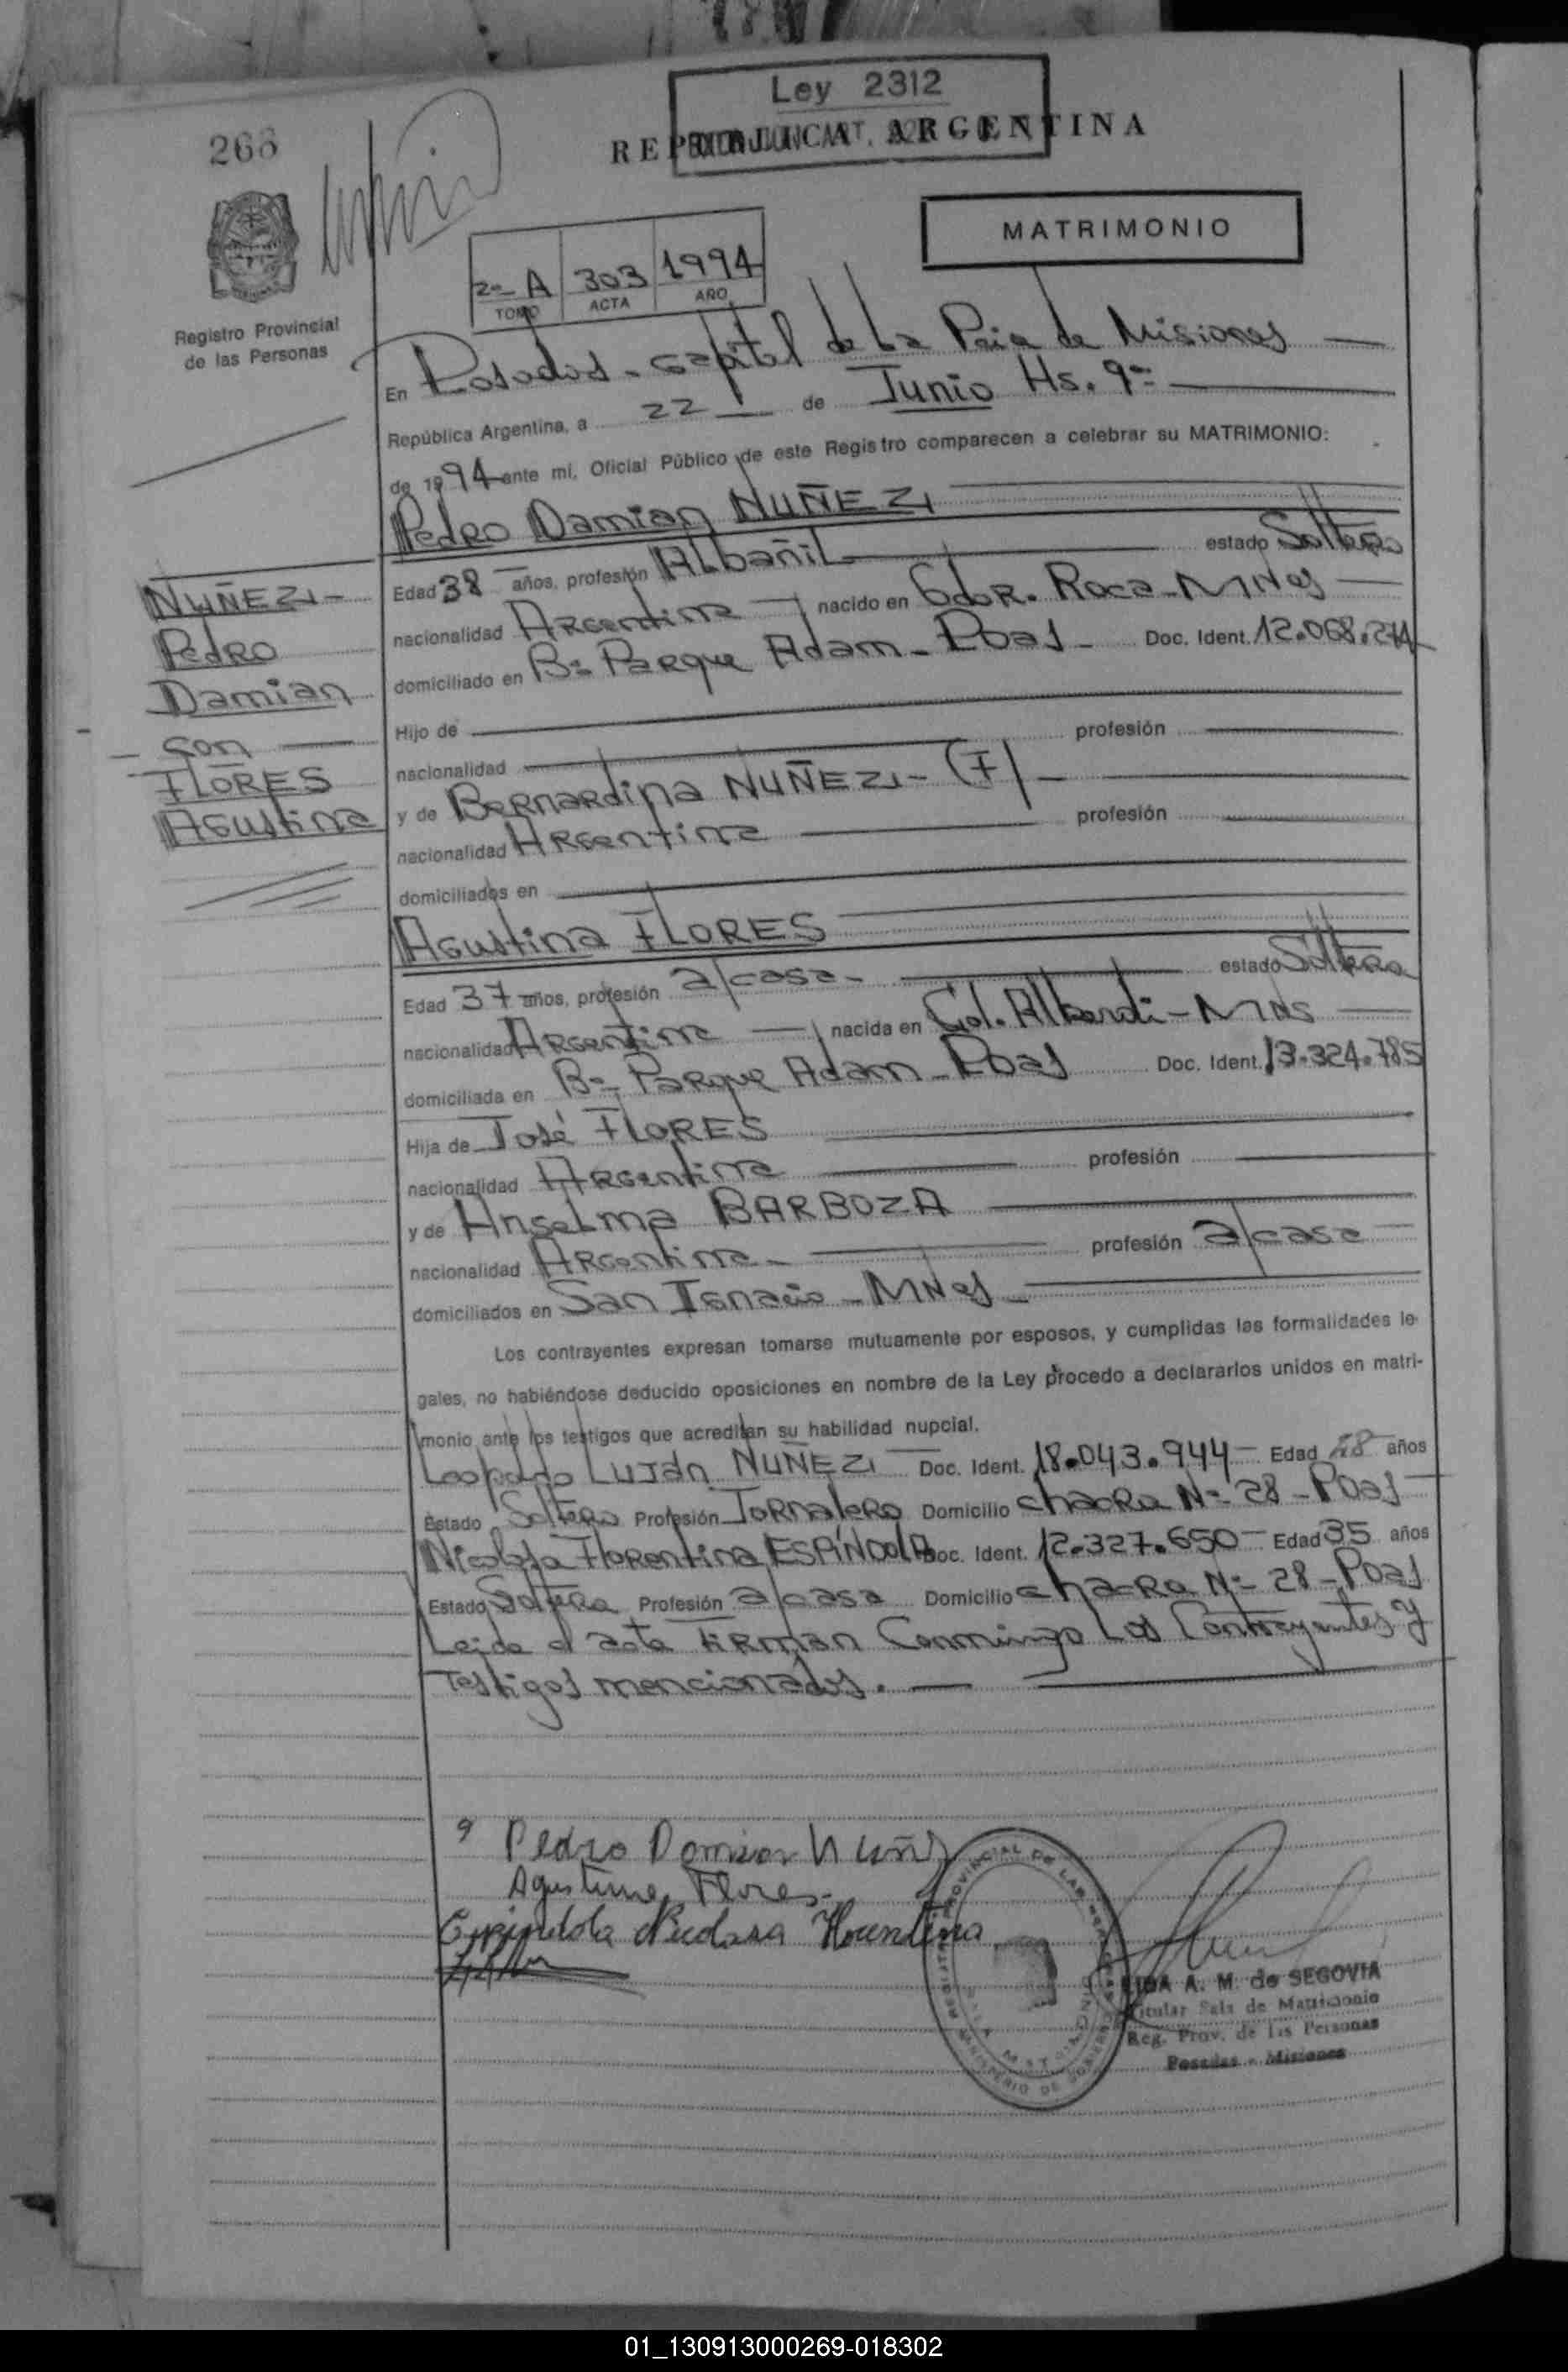 Ley 2312
REPUBLICA ARGENTINA
266
MATRIMONIO
2º A 303 1994
TOMO ACTA AÑO
Registro Provincial
de las Personas
En Posadas - capital de la Pcia de Misiones
República Argentina, a 22 de Junio Hs. 9º
de 1994 ante mí, Oficial Público de este Registro comparecen a celebrar su MATRIMONIO:
Pedro Damian NUÑEZ
Edad 38 años, profesión Albañil estado Soltero
nacionalidad Argentina nacido en Gdor. Roca - MNes
domiciliado en Bº Parque Adam - Pdas - Doc. Ident. 12.068.274
Hijo de
nacionalidad profesión
y de Bernardina NUÑEZ - (F)
nacionalidad Argentina profesión
domiciliados en
NUÑEZ -
Pedro
Damian
con
FLORES
Agustina
Agustina FLORES
Edad 37 años, profesión a/casa - estado Soltera
nacionalidad Argentina nacida en Col. Alberdi - MNes
domiciliada en Bº Parque Adam - Pdas Doc. Ident. 13.324.785
Hija de José FLORES
nacionalidad Argentina profesión
y de Anselma BARBOZA
nacionalidad Argentina - profesión a/casa
domiciliados en San Ignacio - MNes -
Los contrayentes expresan tomarse mutuamente por esposos, y cumplidas las formalidades le-
gales, no habiéndose deducido oposiciones en nombre de la Ley procedo a declararlos unidos en matri-
monio ante los testigos que acreditan su habilidad nupcial.
Leopoldo Luján NUÑEZ Doc. Ident. 18.043.944 - Edad 28 años
Estado Soltero Profesión Jornalero Domicilio chacra Nº 28 - Pdas
Nicolasa Florentina ESPÍNDOLA Doc. Ident. 12.327.650 - Edad 35 años
Estado Soltera Profesión a/casa Domicilio chacra Nº 28 - Pdas
Leida el acta firman Conmingo Los Contrayentes y
Testigos mencionados.
Pedro Damian Nuñez
Agustina Flores
Espindola Nicolasa Florentina
LIDA A. M. de SEGOVIA
Titular Sala de Matrimonio
Reg. Prov. de las Personas
Posadas - Misiones
01_130913000269-018302